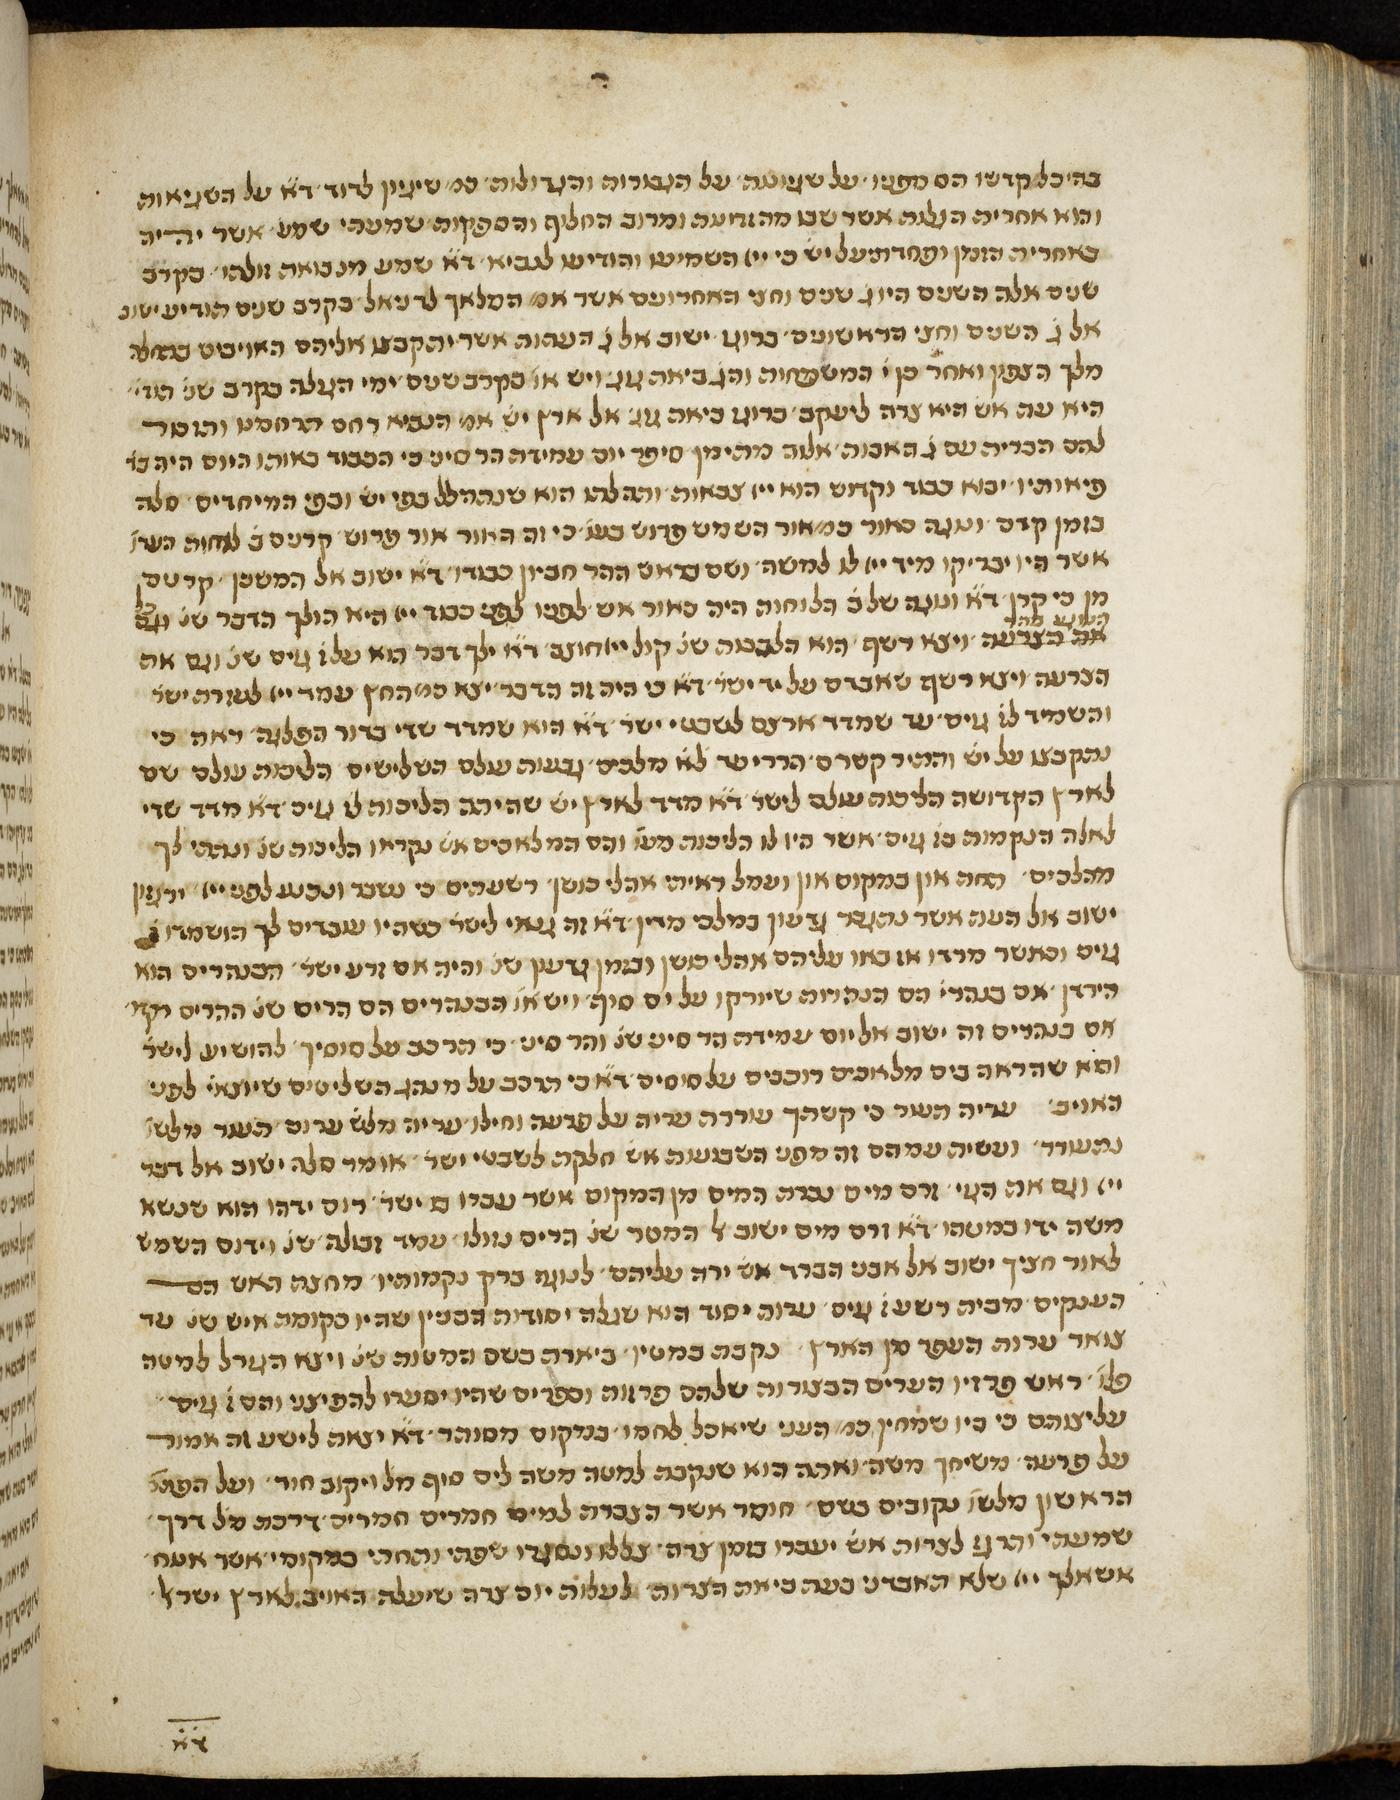 בהיכל קדשו הס מפניו על שגיונות על הגבורות והגדולות כמ׳ שיגיון לדוד ד״א על השגיאות
והוא אחרית הגלות אשר שבו מהזרועה ומרוב החליף והספקות שמעתי שמע אשר יהיה
באחרית הזמן ופחדתי על יש׳ כי ייי השמיעו והודיעו לנביא ד״א שמע מנבואת זולתו בקרב
שנים אלה השנים היו ג שנים וחצי האחרונים אשר אמ׳ המלאך לדניאל בקרב שנים תודיע ישוב
אל ג השנים וחצי הראשונים ברוגז ישוב אל ג העתות אשר יתקבצו אליהם האויבים
מלך הצפון ואחר כן המשפחות והג ביאת גוג ויש או׳ בקרב שנים ימי הגלות בקרב שנ׳ תודי׳
היא עת אש׳ היא צרה ליעקב ברוגז ביאת גוג אל ארץ יש׳ אמ׳ הנביא רחם תרחמינו ותזכור
להם הברית עם ג האבות אלוה מתימן סיפר יום עמידת הר סיני כי הכבוד באותו היום היה בו׳
פיאותיו יבוא כבוד וקדוש הוא ייי צבאות ותהלתו הוא שנתהלל בפי יש׳ ובפי המיחדים סלה
בזמן קדם ונוגה כאור כמ׳ אור השמש פרוש בעו׳ כי זה האור אור פרוש קרנים ב לוחות העדו׳
אשר היו יבריקו מיד ייי לו למשה ושם בראש ההר חביון כבודו ד״א ישוב אל המשכן קרנים
מן כי קרן ד״א ונוגה של ב הלוחות היה כאור אש לפניו לפני כבוד ייי היא הולך הדבר שנ׳ וגם
את הצרעה ויצא רשף הוא הלבנות שנ׳ קול ייי חוצב ד״א ילך דבר הוא על ז גוים שנ׳ וגם את
הצרעה ויצא רשף שאבדם על יד ישר׳ ד״א כי היה זה הדבר יצא כמ׳ החץ עמד ייי לעזרת ישר׳
והשמיד לז׳ גוים עד שמדד ארצם לשבטי ישר׳ ד״א הוא שמדד שדי בדור הפלגה ראה כי
נתקבצו על יש׳ והתיר קשרם הררי עד ל״א מלכים גבעות עולם השלישים הליכות עולם שם
לארץ הקדושה הליכות עולם לישר׳ ד״א מדד לארץ יש׳ שהיתה הליכות לז׳ גוים ד״א מדד שדי
לאלה הנקמות בז׳ גוים אשר היו לו הליכות מעו׳ והם המלאכים אש׳ נקראו הליכות שנ׳ ונתתי לך
מהלכים תחת און במקום און ועמל ראיתי אהלי כושן רשעתים כי נשבר ונכנע לפני ייי ירגזון
ישוב אל העת אשר נתגבר גדעון במלכי מדין ד״א זה גנאי לישר׳ כשהיו עובדים לך הושמדו ז׳
גוים וכאשר מרדו אז באו עליהם אהלי כושן ובזמן גדעון שנ׳ והיה אם זרע ישר׳ הבנהרים הוא
הירדן אם בנהרי׳ הם הנהרות שיורקו על ים סוף ויש או׳ הבנהרים הם הרים שנ׳ ההרים רקדו׳
אם בנהרים זה ישוב אל יום עמידת הר סיני שנ׳ והר סיני כי תרכב על סוסיך להושיע לישר׳
והוא שהראה בים מלאכים רוכבים על סוסים ד״א כי תרכב על מנהג השליטים שיוצאי׳ לפני
האויב עריה תעור כי קשתך עוררת עריה על פרעה וחילו עריה מלש׳ ערום תעור מלשו׳
נתעורר ועשית עמהם זה מפני השבועות אש׳ חלקת לשבטי ישר׳ אומר סלה ישוב אל דבר
ייי וגם את הגוי זרם מים עברת המים מן המקום אשר עברו בו ישר׳ רום ידהו הוא שנשא
משה ידו במטהו ד״א זרם מים ישוב ל המטר שנ׳ הרים נזולו עמד זבולה שנ׳ וידום השמש
לאור חציך ישוב אל אבני הברד אש׳ ירה עליהם לנוגה ברק נקמותיו מחנה האש הם
הענקים מבית רשע ז גוים ערות יסוד הוא שגלה יסודות הבנין שהיו בקומת איש שנ׳ עד
צואר ערות העפר מן הארץ נקבת במטיו ביארה בשם המטות שנ׳ ויצא הגורל למטה
פלו׳ ראש פרזיו הערים הבצורות שלהם פרזות וכפרים שהיו יסערו להפיצני והם ז גוים
עליצותם כי היו שמחין כמ׳ העני שיאכל לחמו במקום מסותר ד״א יצאת לישע זה אמור
על פרעה משיחך משה ואהרן הוא שנקבת למטה משה לים סוף מל׳ ויקוב חור ועל הפתר׳
הראשון מלשו׳ נקובים בשם חומר אשר הצברת למים חמרים חמרים דרכת מל׳ דרך
שמעתי ותרגז לצרות אש׳ יעברו בזמן צרה צללו ונסגרו שפתי ותחתי במקומי אשר אנוח
אשאלך ייי שלא תאבדני בעת ביאת הצרות לעלות יום צרה שיעלה האויב לארץ ישר׳